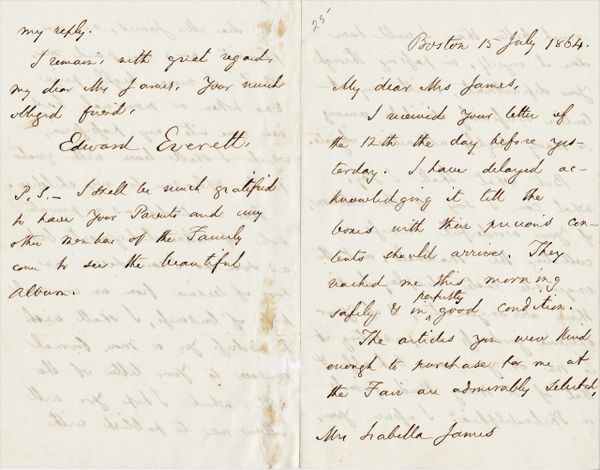 my reply.
I remain, with great regard,
my dear Mrs James, Your much
obliged friend,
Edward Everett.
P.S. – I shall be much gratified
to have Your Parents and any
other member of the Family
come to see the beautiful
album.
25
Boston 15 July 1864.
My dear Mrs James,
I received Your letter of
the 12th the day before yes-
terday. I have delayed ac-
knowledging it till the
boxes with their precious con-
tents should arrive. They
reached me this morning
perfectly
safely & in good condition.
The articles you were kind
enough to purchase for me at
the Fair are admirably selected,
Mrs Isabella James